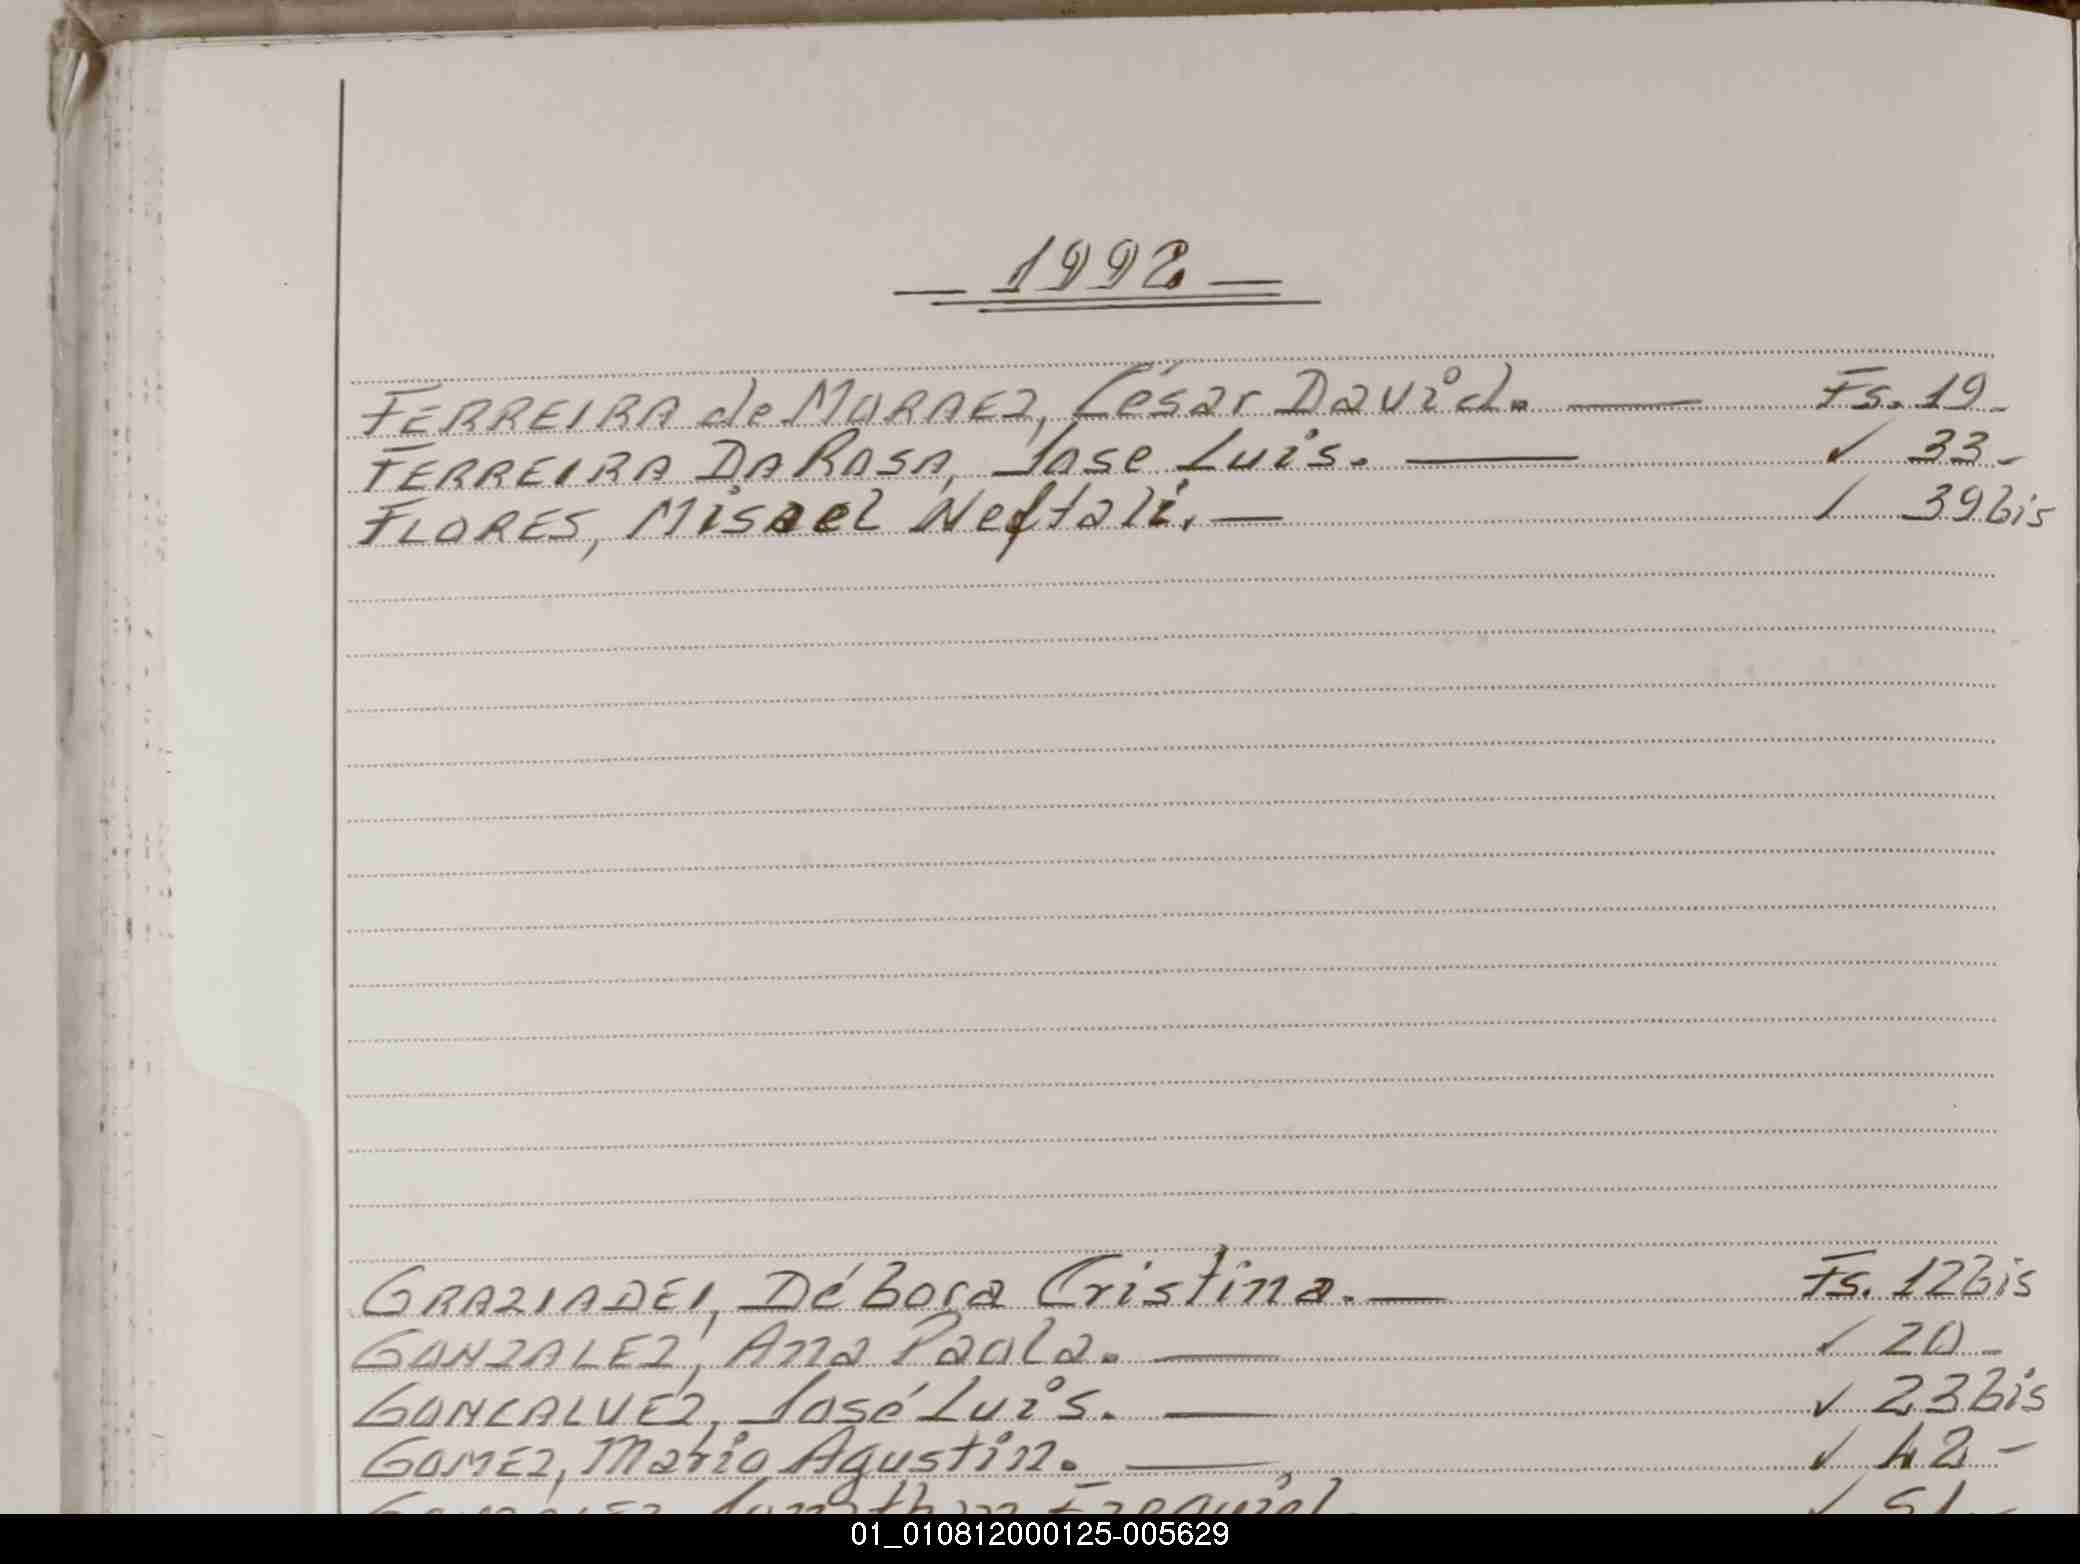 — 1992 —
FERREIRA de MORAEZ, César David. — Fs. 19 -
FERREIRA DA ROSA, Jose Luis. — ✓ 33 -
FLORES, Misael Neftali. — / 39 bis
GRAZIADEI, Débora Cristina. — Fs. 12 bis
GONZALEZ, Ana Paola. — ✓ 20 -
GONCALVEZ, José Luis. — ✓ 23 bis
GOMEZ, Mario Agustin. — ✓ 42 -
Ezequiel. ✓ 51 -
01_010812000125-005629